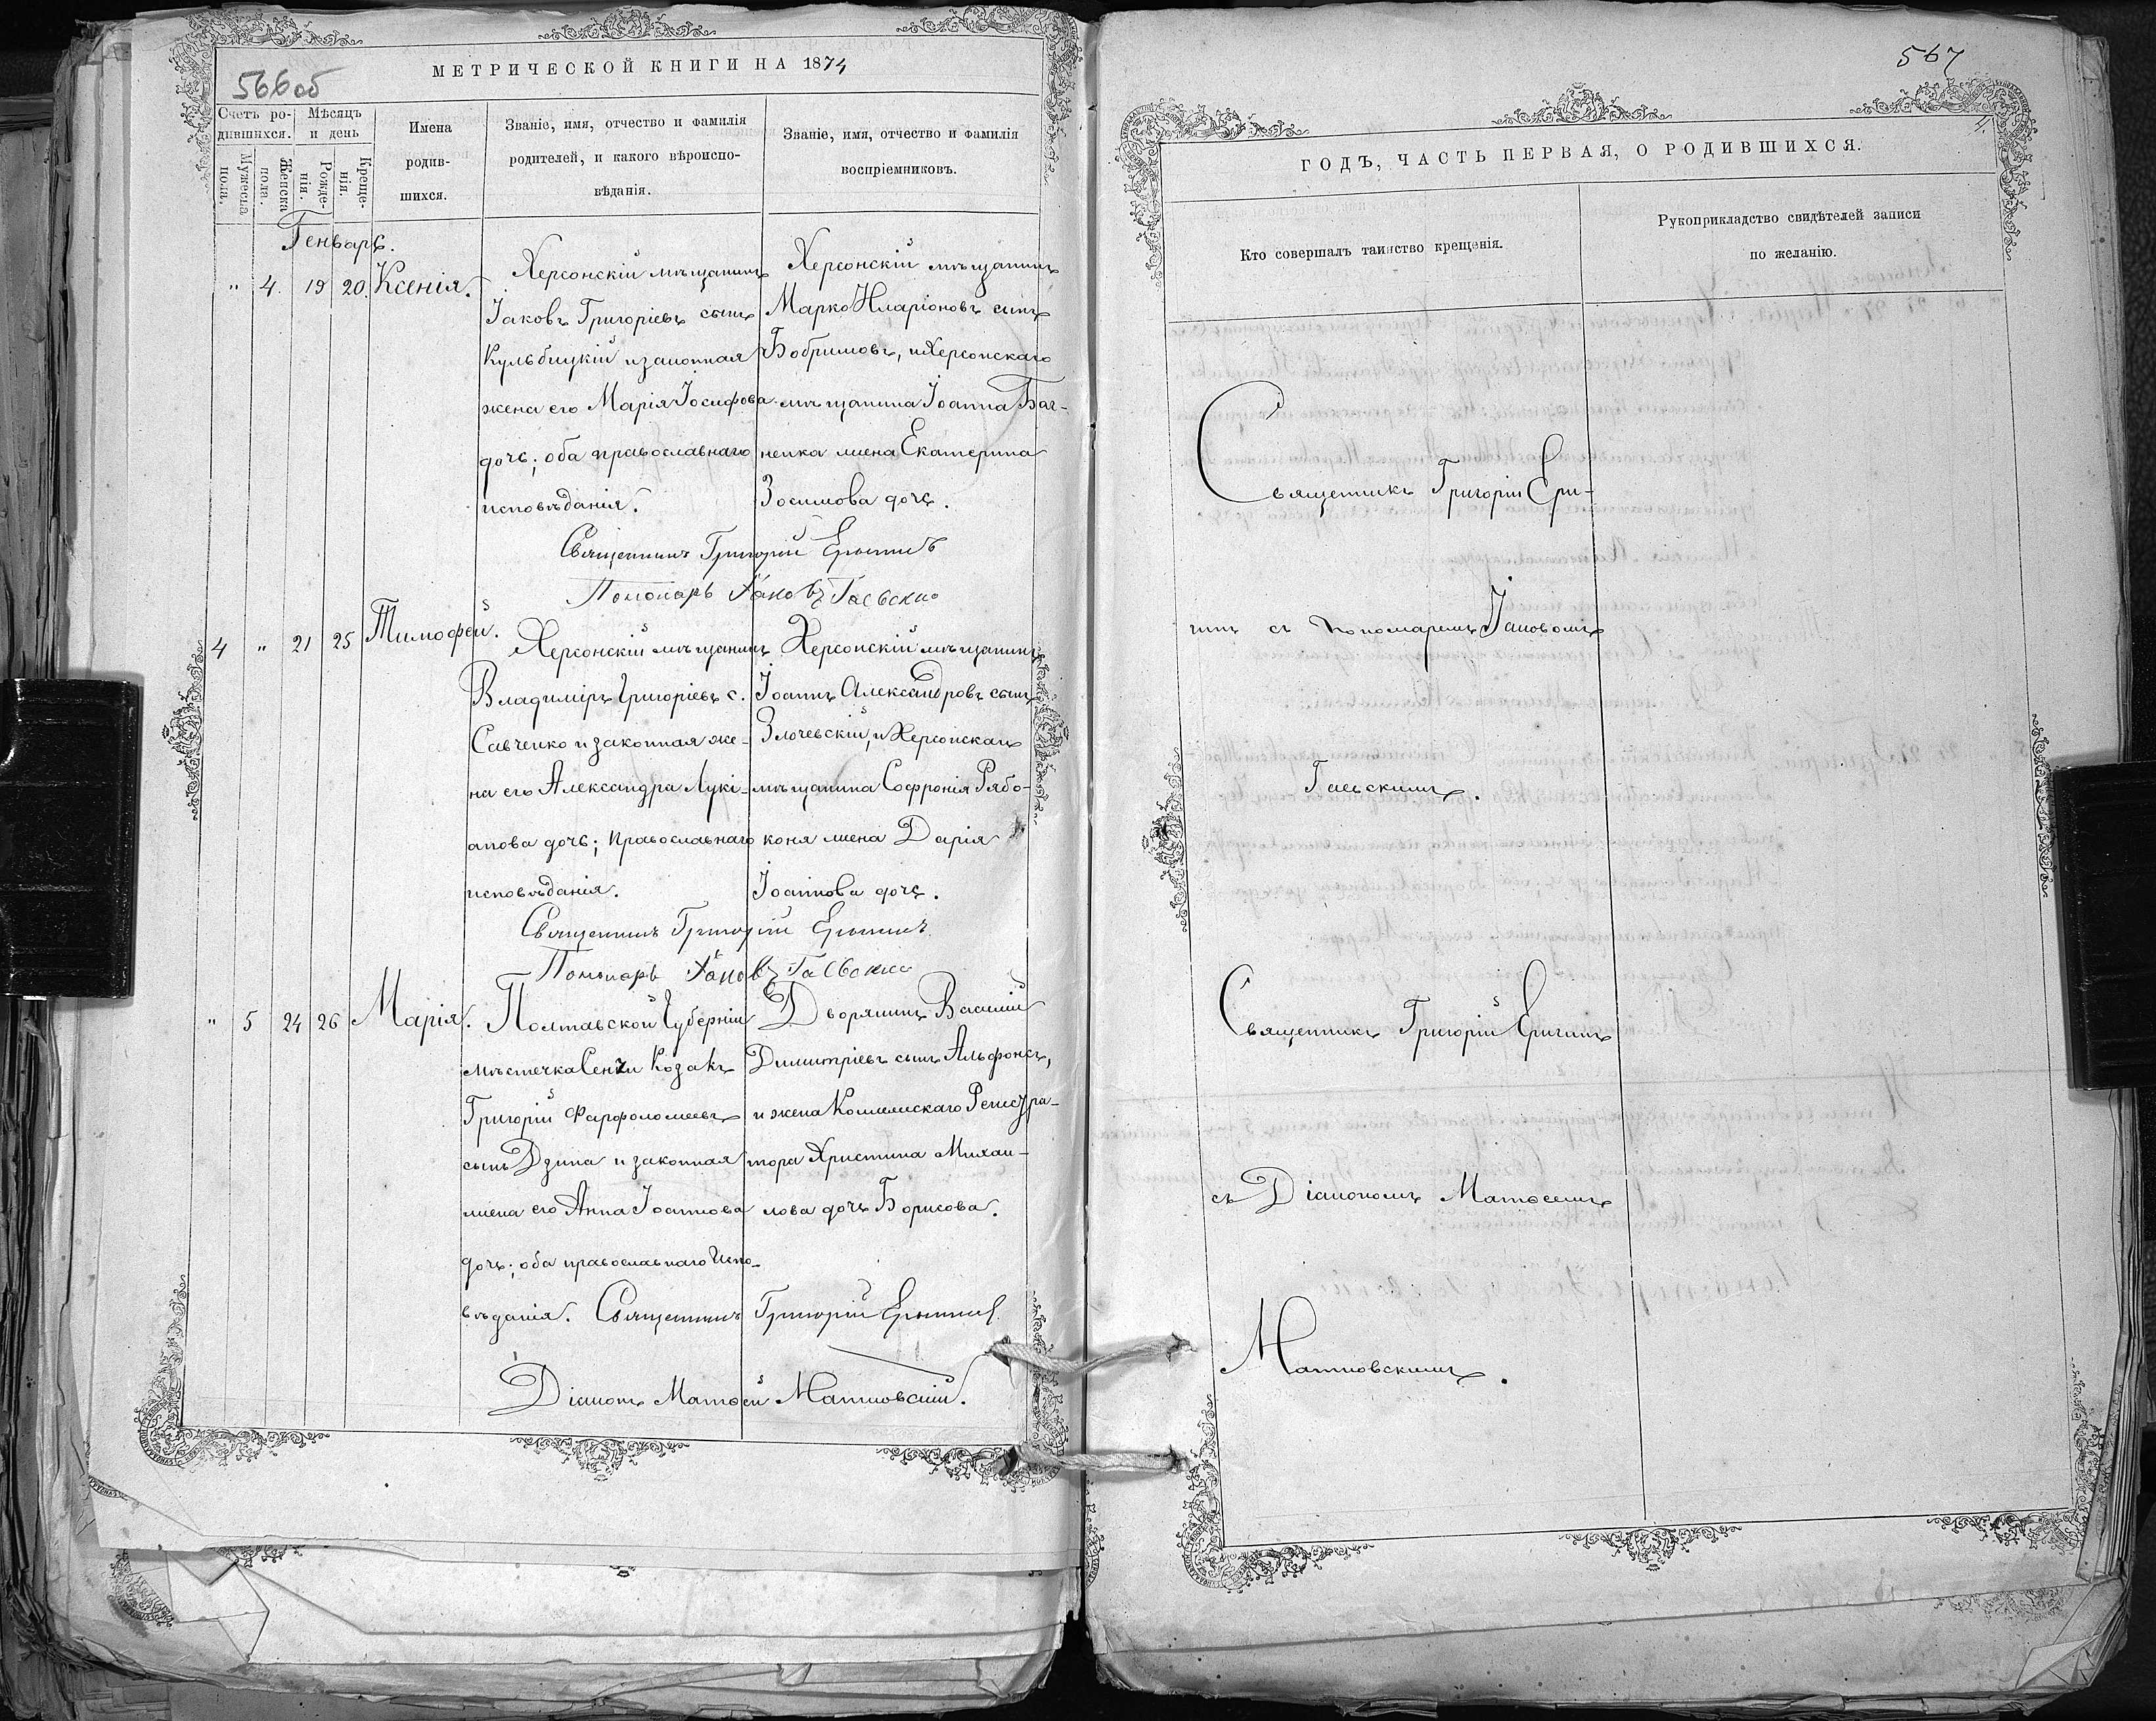 566 об
МЕТРИЧЕСКОЙ КНИГИ НА 1874
Счетъ ро-
дившихся.
Мѣсяцъ
и день
Мужеска
пола.
Женска
пола.
Рожде-
нія.
Креще-
нія.
Имена
родив-
шихся.
Званіе, имя, отчество и фамилія
родителей, и какого вѣроиспо-
вѣданія.
Званіе, имя, отчество и фамилія
воспріемниковъ.
Генварь.
" 4. 19 20. Ксенія.
Херсонскій мѣщанинъ
Іаковъ Григоріевъ сынъ
Кульбицкій и законная
жена его Марія Іосифова
дочь; оба православнаго
исповѣданія.
Херсонскій мѣщанинъ
Марко Иларіоновъ сынъ
и Херсонскаго
мѣщанина Іоанна
жена Екатерина
Зосимова дочь.
Священникъ Григорій
Пономарь Іаковъ Гаевскій
4 " 21 25 Тимофей.
Херсонскій мѣщанинъ
Владиміръ Григоріевъ с.
Савченко и законная же-
на его Александра Лукі-
анова дочь; православнаго
исповѣданія.
Херсонскій мѣщанинъ
Іоаннъ Александровъ сынъ
Злочевскій, и Херсонскаго
мѣщанина Софронія Рябо-
коня жена Дарія
Іоаннова дочь.
Священникъ Григорій
Пономарь Іаковъ Гаевскій
" 5 24 26 Марія.
Полтавской Губерніи
мѣстечка Сенчи Козакъ
Григорій Фарфоломеевъ
сынъ Дзина и законная
жена его Анна Іоаннова
дочь; оба православнаго испо-
вѣданія.
Дворянинъ Василій
Димитріевъ сынъ Альфонсъ,
и жена Коллежскаго Регистра-
тора Христина Михаи-
лова дочь Борисова.
Священникъ Григорій
Діаконъ Матѳей
567
4.
ГОДЪ, ЧАСТЬ ПЕРВАЯ, О РОДИВШИХСЯ.
Кто совершалъ таинство крещенія.
Рукоприкладство свидѣтелей записи
по желанію.
Священникъ Григорій
съ пономаремъ Іаковомъ
Гаевскимъ.
Священникъ Григорій
съ Діакономъ Матѳеемъ